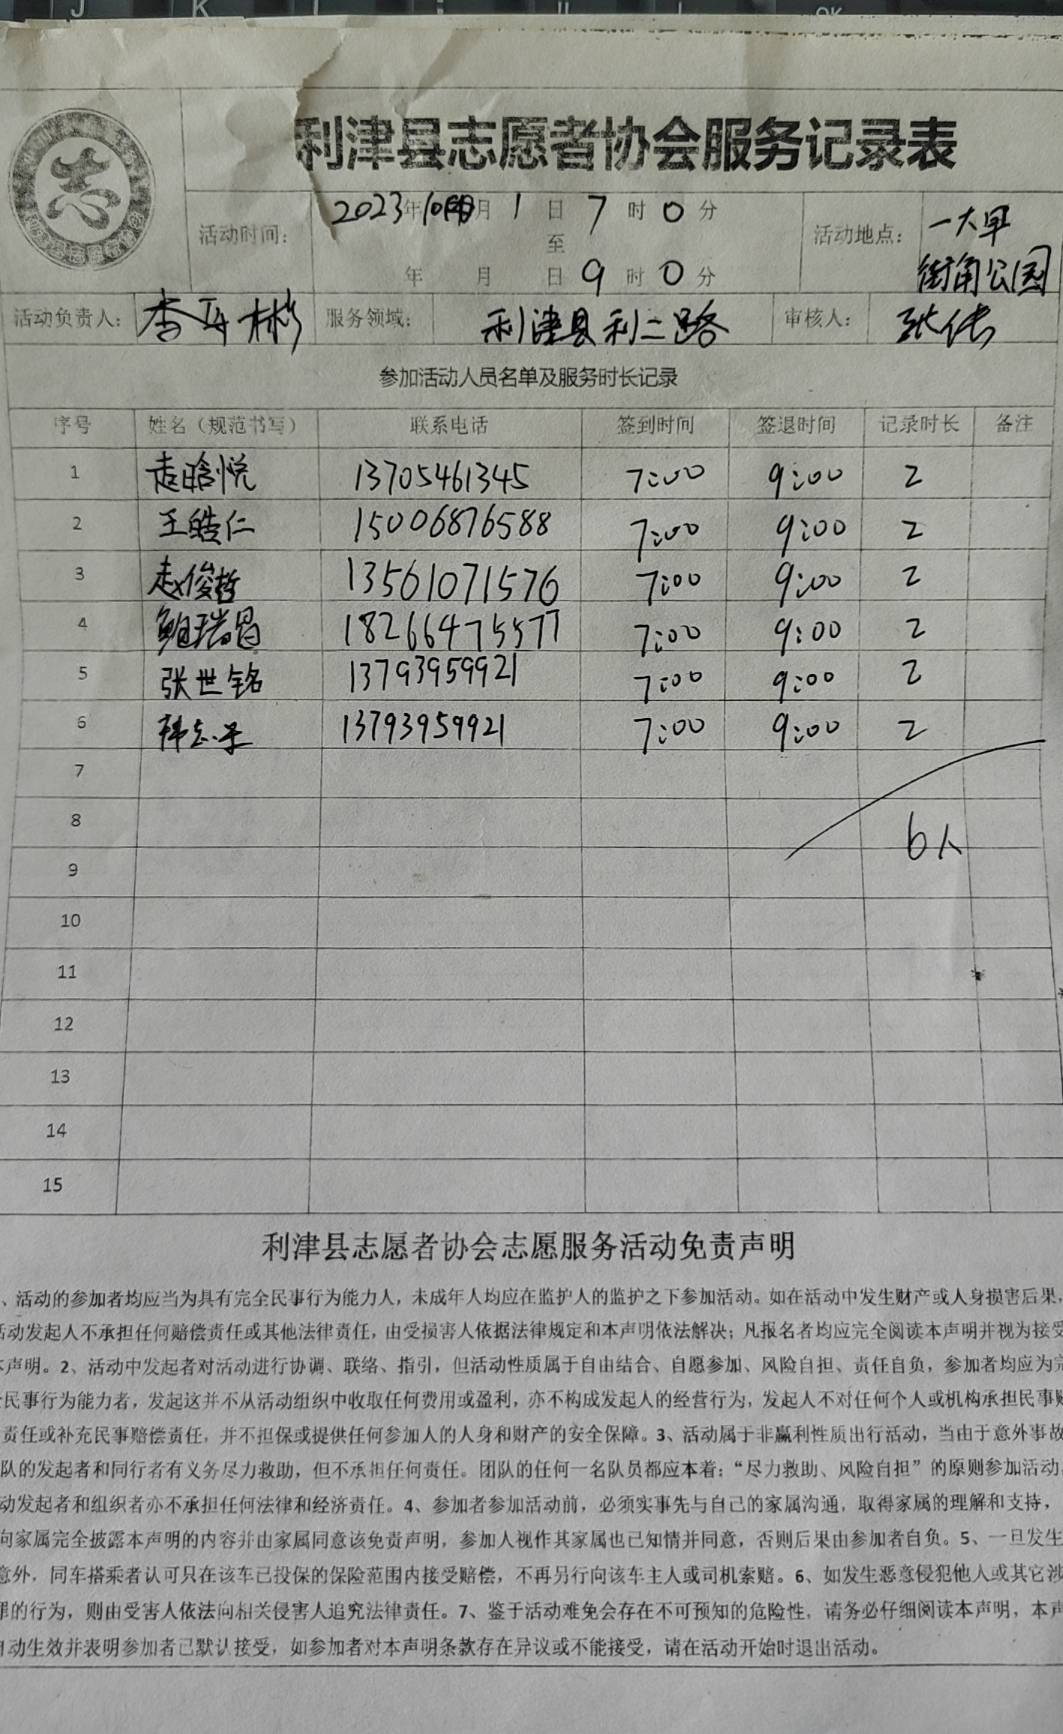 利津县志愿者协会服务记录表
志
活动时间: 2023年10月1日7时0分
至
年 月 日9时0分
活动地点: 一大早
街角公园
活动负责人: 李 彬 服务领域: 利津县利二路 审核人: 张伟
参加活动人员名单及服务时长记录
序号 姓名（规范书写） 联系电话 签到时间 签退时间 记录时长 备注
1 赵晗悦 13705461345 7:00 9:00 2
2 王皓仁 15006876588 7:00 9:00 2
3 赵俊哲 13561071576 7:00 9:00 2
4 鲍瑞昌 18266475577 7:00 9:00 2
5 张世铭 13793959921 7:00 9:00 2
6 韩志 13793959921 7:00 9:00 2
7
8 6人
9
10
11
12
13
14
15
利津县志愿者协会志愿服务活动免责声明
、活动的参加者均应当为具有完全民事行为能力人，未成年人均应在监护人的监护之下参加活动。如在活动中发生财产或人身损害后果，
活动发起人不承担任何赔偿责任或其他法律责任，由受损害人依据法律规定和本声明依法解决；凡报名者均应完全阅读本声明并视为接受
本声明。2、活动中发起者对活动进行协调、联络、指引，但活动性质属于自由结合、自愿参加、风险自担、责任自负，参加者均应为完
全民事行为能力者，发起这并不从活动组织中收取任何费用或盈利，亦不构成发起人的经营行为，发起人不对任何个人或机构承担民事赔
责任或补充民事赔偿责任，并不担保或提供任何参加人的人身和财产的安全保障。3、活动属于非赢利性质出行活动，当由于意外事故
队的发起者和同行者有义务尽力救助，但不承担任何责任。团队的任何一名队员都应本着：“尽力救助、风险自担”的原则参加活动
动发起者和组织者亦不承担任何法律和经济责任。4、参加者参加活动前，必须实事先与自己的家属沟通，取得家属的理解和支持，
向家属完全披露本声明的内容并由家属同意该免责声明，参加人视作其家属也已知情并同意，否则后果由参加者自负。5、一旦发生
意外，同车搭乘者认可只在该车已投保的保险范围内接受赔偿，不再另行向该车主人或司机索赔。6、如发生恶意侵犯他人或其它涉
罪的行为，则由受害人依法向相关侵害人追究法律责任。7、鉴于活动难免会存在不可预知的危险性，请务必仔细阅读本声明，本声
自动生效并表明参加者已默认接受，如参加者对本声明条款存在异议或不能接受，请在活动开始时退出活动。